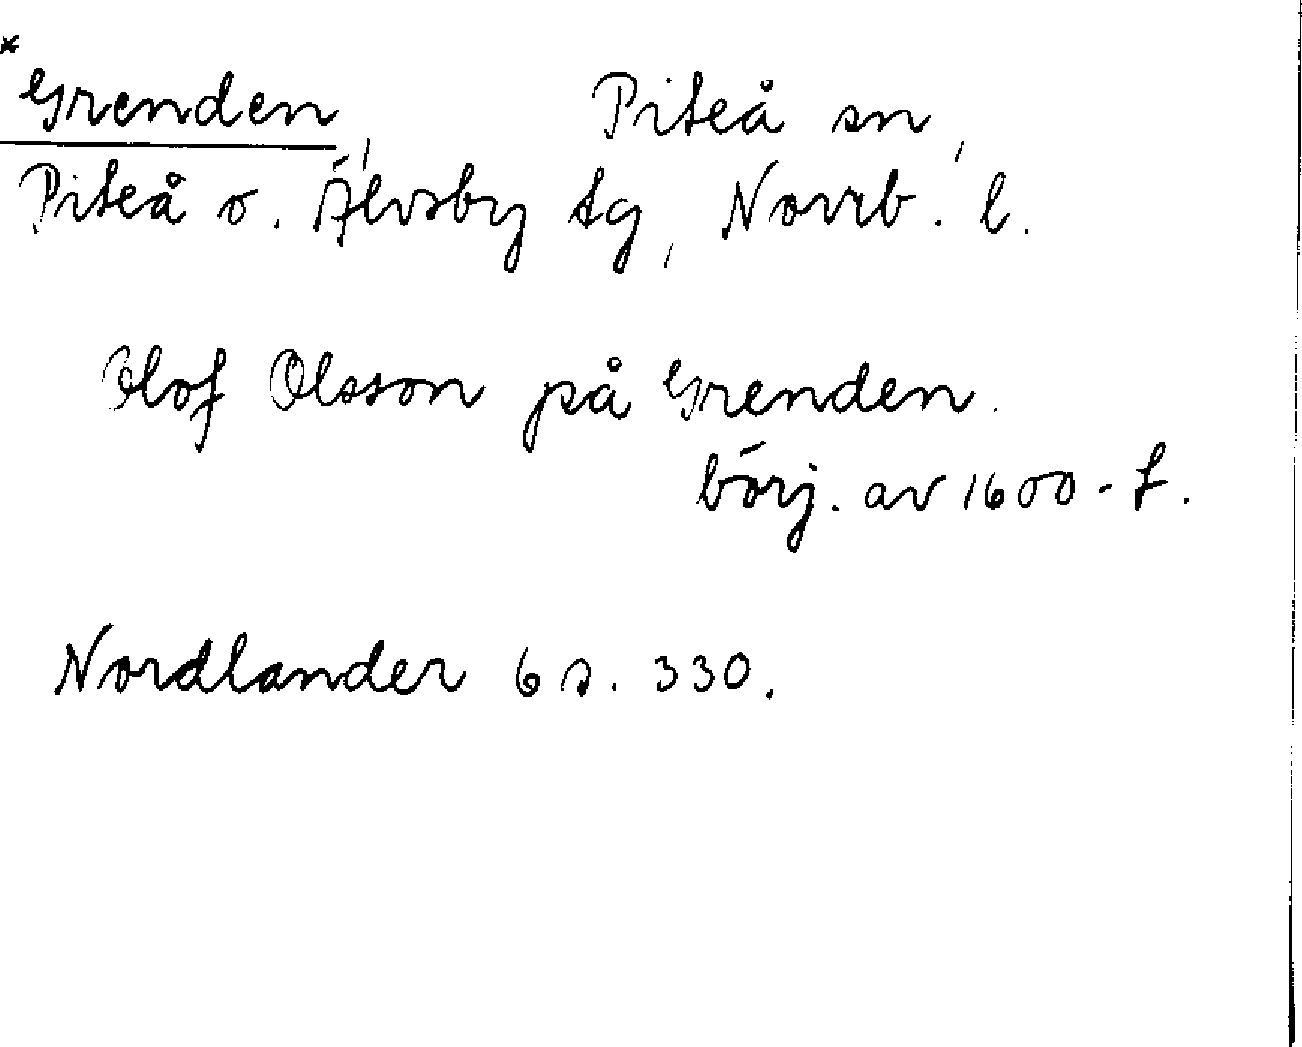 *Grenden, Piteå sn,
Piteå o. Älvsby tg, Norrb. l.
Olof Olsson på Grenden.
börj. av 1600-t.
Nordlander 6 s. 330.